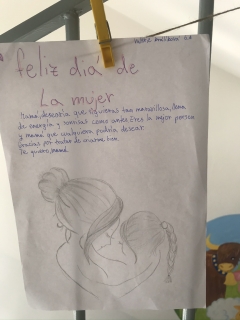 feliz diá de
La mujer
Mamá, desearía que siguieras tan maravillosa, llena
de energía y sonrisas como antes. Eres la mejor persona
y mamá que cualquiera podría desear.
Gracias por tratar de criarme bien.
Te quiero, mamá